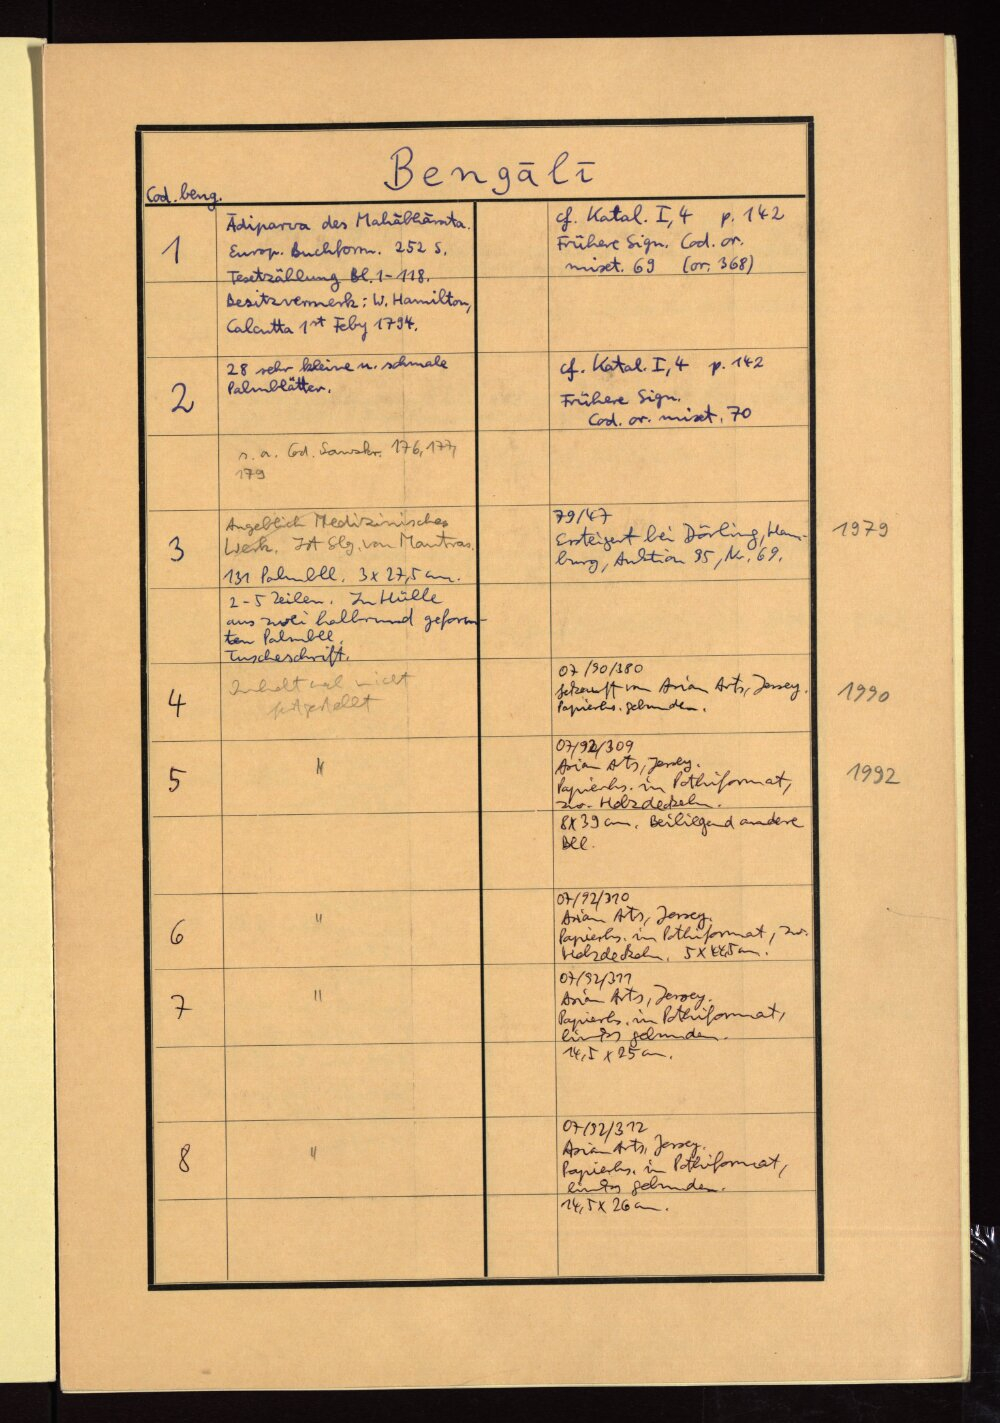 Bengālī
Cod. beng.
1
Ādiparva des Mahābhārata.
Europ. Buchform. 252 S.
Textzählung Bl. 1-118.
Besitzvermerk: W. Hamilton,
Calcutta 1st Feby 1794.
cf. Katal. I,4 p. 142
Frühere Sign. Cod. or.
mixt. 69 (or. 368)
2
28 sehr kleine u. schmale
Palmblätter.
cf. Katal. I,4 p. 142
Frühere Sign.
Cod. or. mixt. 70
s. a. Cod. Sanskr. 176, 177,
179
3
Angeblich Medizinisches
Werk. Ist Slg. von Mantras.
131 Palmbll. 3 x 27,5 cm.
2-5 Zeilen. In Hülle
aus zwei halbrund geform-
ten Palmbll.
Tuscheschrift.
79/47
Ersteigert bei Dörling, Ham-
burg, Auktion 95, Nr. 69.
1979
4
Inhalt noch nicht
festgestellt
07/90/380
gekauft von Asian Arts, Jersey.
Papierhs. gebunden.
1990
5
"
07/92/309
Asian Arts, Jersey.
Papierhs. in Pothiformat,
zw. Holzdeckeln.
8 x 39 cm. Beiliegend andere
Bll.
1992
6
"
07/92/310
Asian Arts, Jersey.
Papierhs. in Pothiformat, zw.
Holzdeckeln. 5 x 44,5 cm.
7
"
07/92/311
Asian Arts, Jersey.
Papierhs. in Pothiformat,
links gebunden.
14,5 x 25 cm.
8
"
07/92/312
Asian Arts, Jersey.
Papierhs. in Pothiformat,
links gebunden.
14,5 x 26 cm.